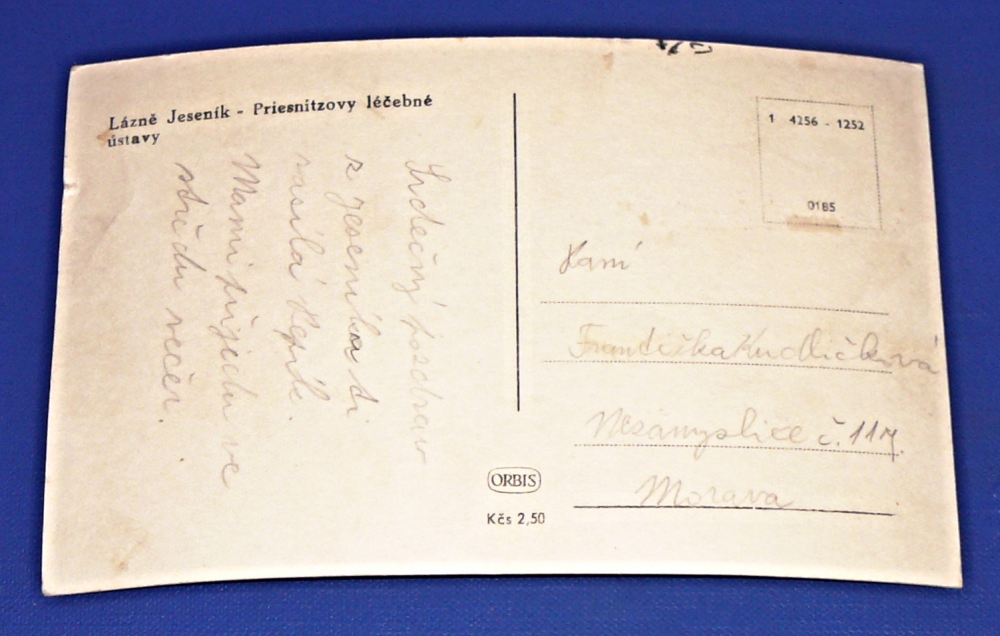 Lázně Jeseník - Priesnitzovy léčebné
ústavy
Srdečný pozdrav
z jeseníka ti
Mami přijedu ve
středu večer.
1 4256 - 1252
0185
Paní
Františka Kudličková
Nezamyslice č. 117.
Morava
ORBIS
Kčs 2,50